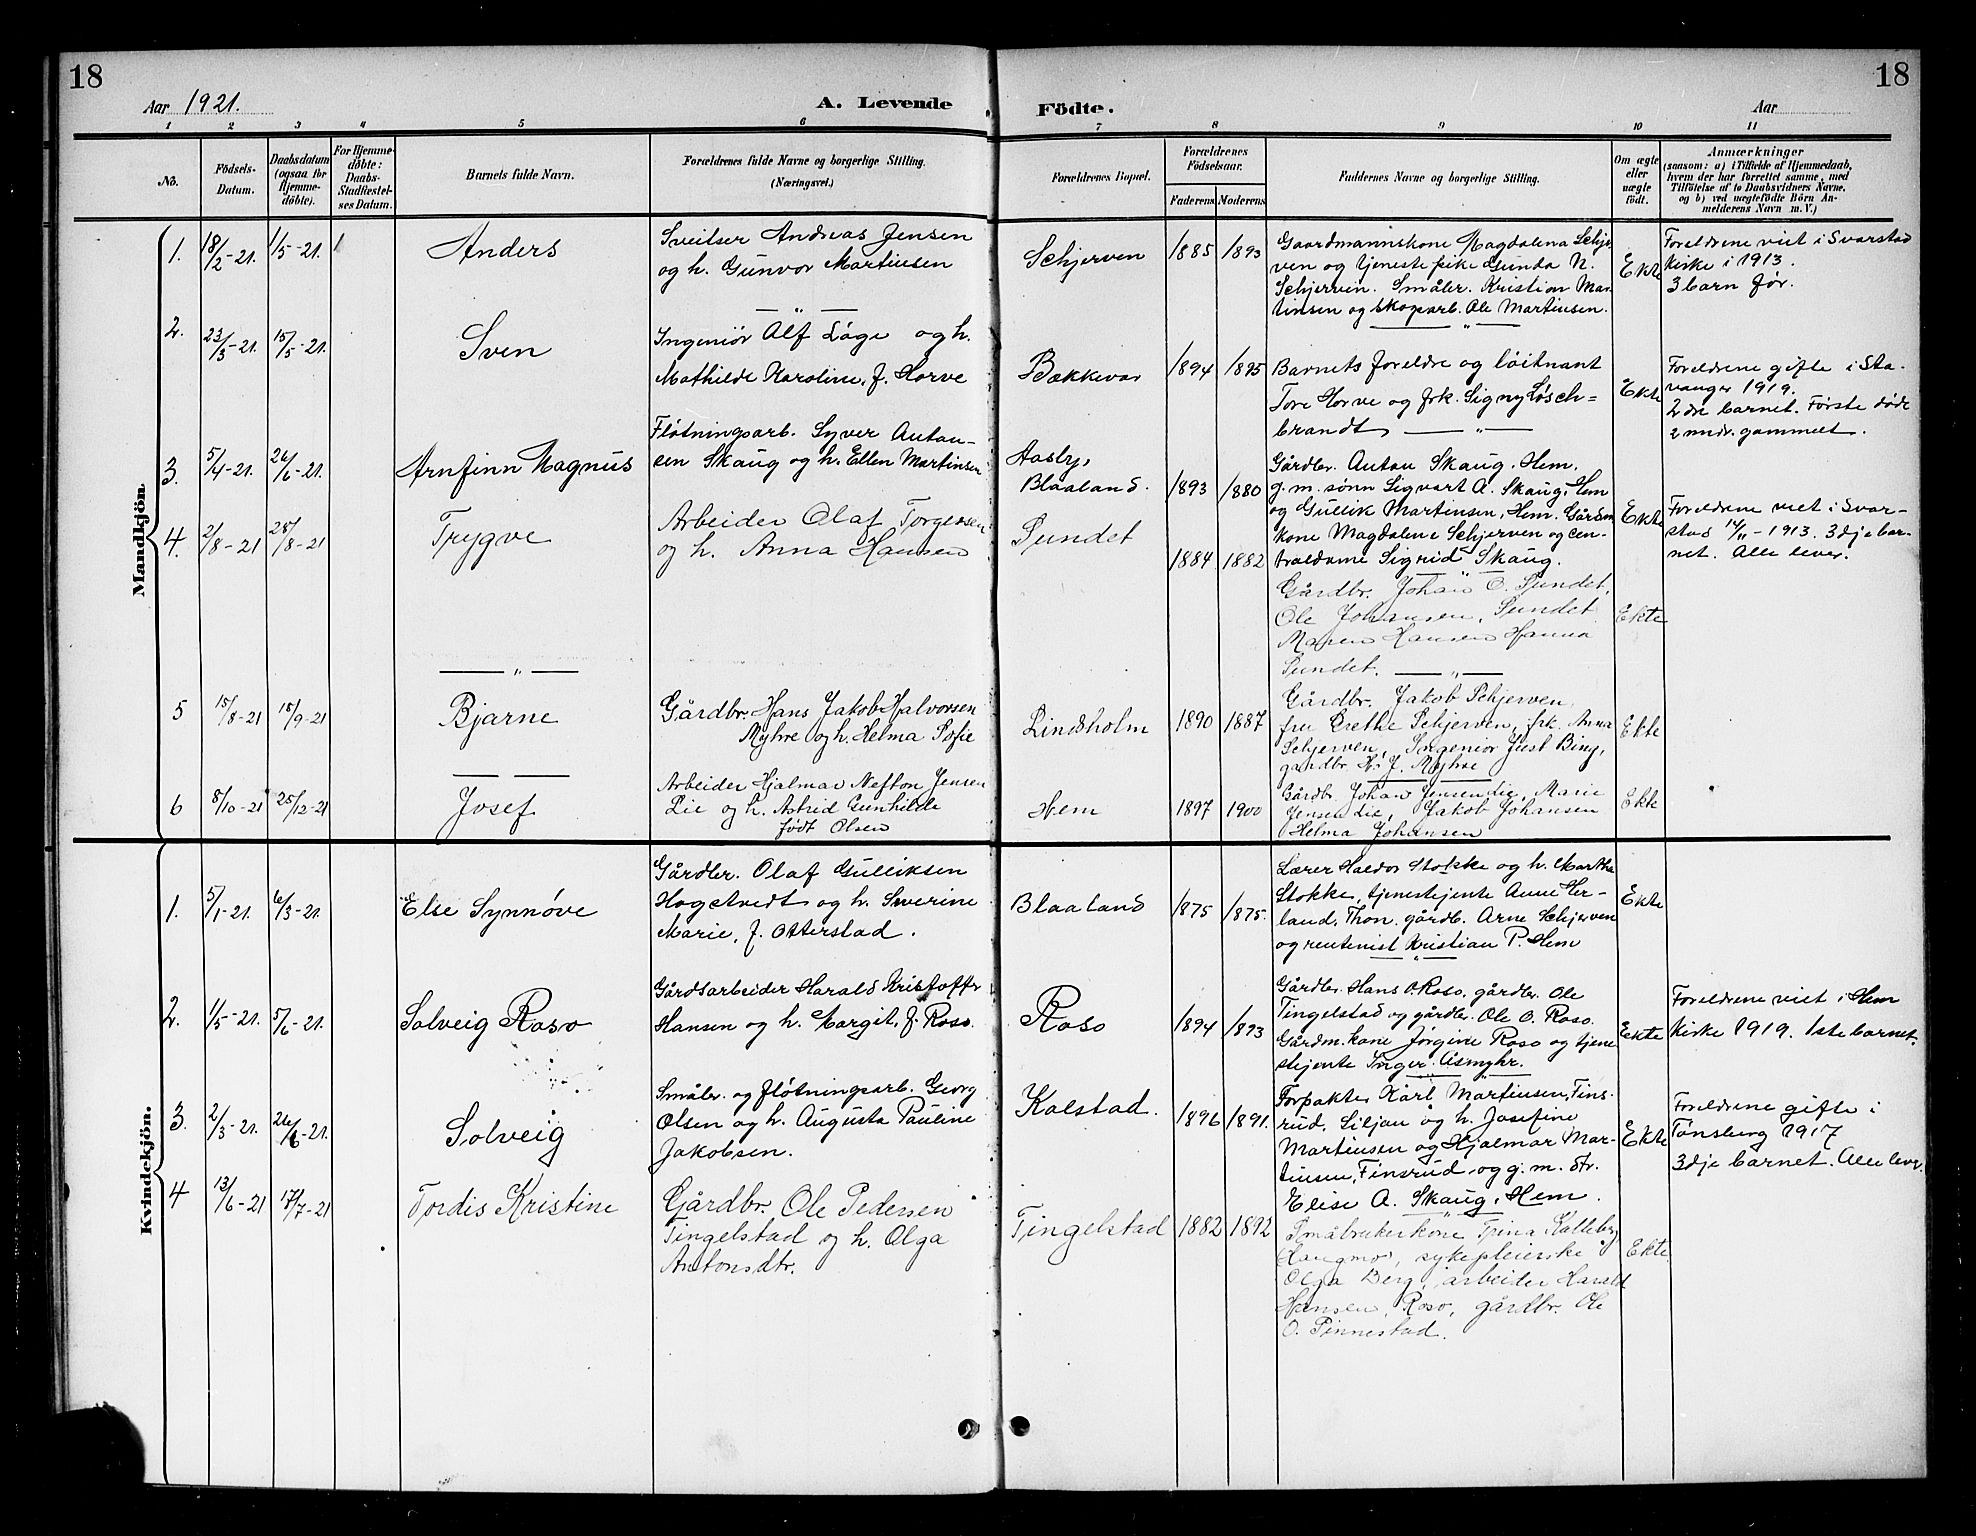 18
18
Aar 1921.
A. Levende
Födte.
Aar
1 2 3 4 5 6 7 8 9 10 11
No.
Födsels-
Datum.
Daabsdatum
(ogsaa for
Hjemme-
döbte).
For Hjemme-
döbte:
Daabs-
Stadfæstel-
ses Datum.
Barnets fulde Navn.
Forældrenes fulde Navne og borgerlige Stilling.
(Næringsvei.)
Forældrenes Bopæl.
Forældrenes
Födselsaar.
Faderens Moderens
Faddernes Navne og borgerlige Stilling.
Om ægte
eller
uægte
födt.
Anmærkninger
(saasom: a) i Tilfælde af Hjemmedaab,
hvem der har forrettet samme, med
Tilföielse af to Daabsvidners Navne,
og b) ved uægtefödte Börn An-
melderens Navn m. V.)
Mandkjön
1. 18/2-21. 1/5-21. Anders
Sveitser Andreas Jensen
og h. Gunvor Martinsen
Schjerven 1885 1893
Gaardmannskone Magdalena Schjer
ven og tjenestepike Gunda N.
Schjerven. Småbr. Kristian Mar
tinsen og skogarb. Ole Martinsen.
Ekte
Foreldrene viet i Svarstad
kirke i 1913.
3 barn før.
2. 23/3-21. 15/5-21. Sven
Ingeniør Alf Låge og h.
Mathilde Karoline, f. Horve
Bakkevar 1894 1895
Barnets foreldre og løitnant
Tore Horve og frk. Signy Løsch=
brandt
Ekte
Foreldrene gifte i Sta-
vanger 1919.
2dre barnet. Første døde
2 mndr. gammelt.
3. 5/4-21. 26/6-21. Arnfinn Magnus
Fløtningsarb. Syver Anton-
sen Skaug og h. Ellen Martinsen
Aasby,
Blaaland. 1893 1880
Gårdbr. Anton Skaug, Hem.
g. m. sønn Sigvart A. Skaug, Hem
og Gullik Martinsen, Hem. Gårdm
kone Magdalene Schjerven og cen-
traldame Sigrid Skaug.
Ekte
Foreldrene viet i Svar-
stad 14/11-1913. 3dje bar-
net. Alle lever.
4. 2/8-21 28/8-21 Trygve
Arbeider Olaf Torgersen
og h. Anna Hansen
Sundet 1884 1882
Gårdbr. Johan O. Sundet,
Ole Johansen, Sundet
Maren Hansen Hanna
Sundet.
Ekte
5 15/8-21 18/9-21 Bjarne
Gårdbr. Hans Jakob Halvorsen
Myhre og h. Helma Sofie
Lindsholm 1890 1887
Gårdbr. Jakob Schjerven,
fru Grethe Schjerven, frk. Anna
Schjerven, Ingeniør Just Bing,
gardbr. H. J. Myhre
Ekte
6 8/10-21 25/12-21 Josef
Arbeider Hjalmar Nefton Jensen
Lie og h. Astrid Gunhilde
født Olsen
Hem 1897 1900
Gårdbr Johan Jensen Lie, Marie
Jensen Lie, Jakob Johansen
Helma Johansen
Ekte
Kvindekjön.
1. 5/1-21. 6/3-21. Else Synnøve
Gårdbr. Olaf Gulliksen
Hogstvedt og h. Severine
Marie, f. Otterstad.
Blaaland 1875 1875.
Lærer Haldor Stokke og h. Martha
Stokke, tjenestejente Anne Her-
land, Thon. gårdb. Arne Schjerven
og rentenist Kristian P. Hem
Ekte
2. 1/5-21. 5/6-21. Solveig Roso
Gårdsarbeider Harald Kristoffer
Hansen og h. Margit, f. Roso.
Roso 1894 1893
Gårdbr. Hans O. Roso, gårdbr. Ole
Tingelstad og gårdbr. Ole O. Roso.
Gårdm.kone Jørgine Roso og tjene
stejente Inger Åsmyhr.
Ekte
Foreldrene viet i Hem
kirke 1919. 1ste barnet.
3. 2/3-21. 26/6-21. Solveig
Småbr. og fløtningsarb. Georg
Olsen og h. Augusta Pauline
Jakobsen.
Kalstad. 1896 1891.
Forpakter Karl Martinsen, Fins-
rud, Siljan og h. Josefine
Martinsen og Hjalmar Mar-
tinsen, Finsrud og g. m. dtr.
Elise A. Skaug, Hem.
Ekte
Foreldrene gifte i
Tønsberg 1917
3dje barnet. Alle lever.
4 13/6-21 17/7-21 Tordis Kristine
Gårdbr. Ole Pedersen
Tingelstad og h. Olga
Antonsdtr.
Tingelstad 1882 1892
Småbrukerkone Trina Kalleberg
Haugmo, sykepleierske
Olga Berg, arbeider Harald
Hansen, Roso, gårdbr. Ole
O. Sinnestad.
Ekte